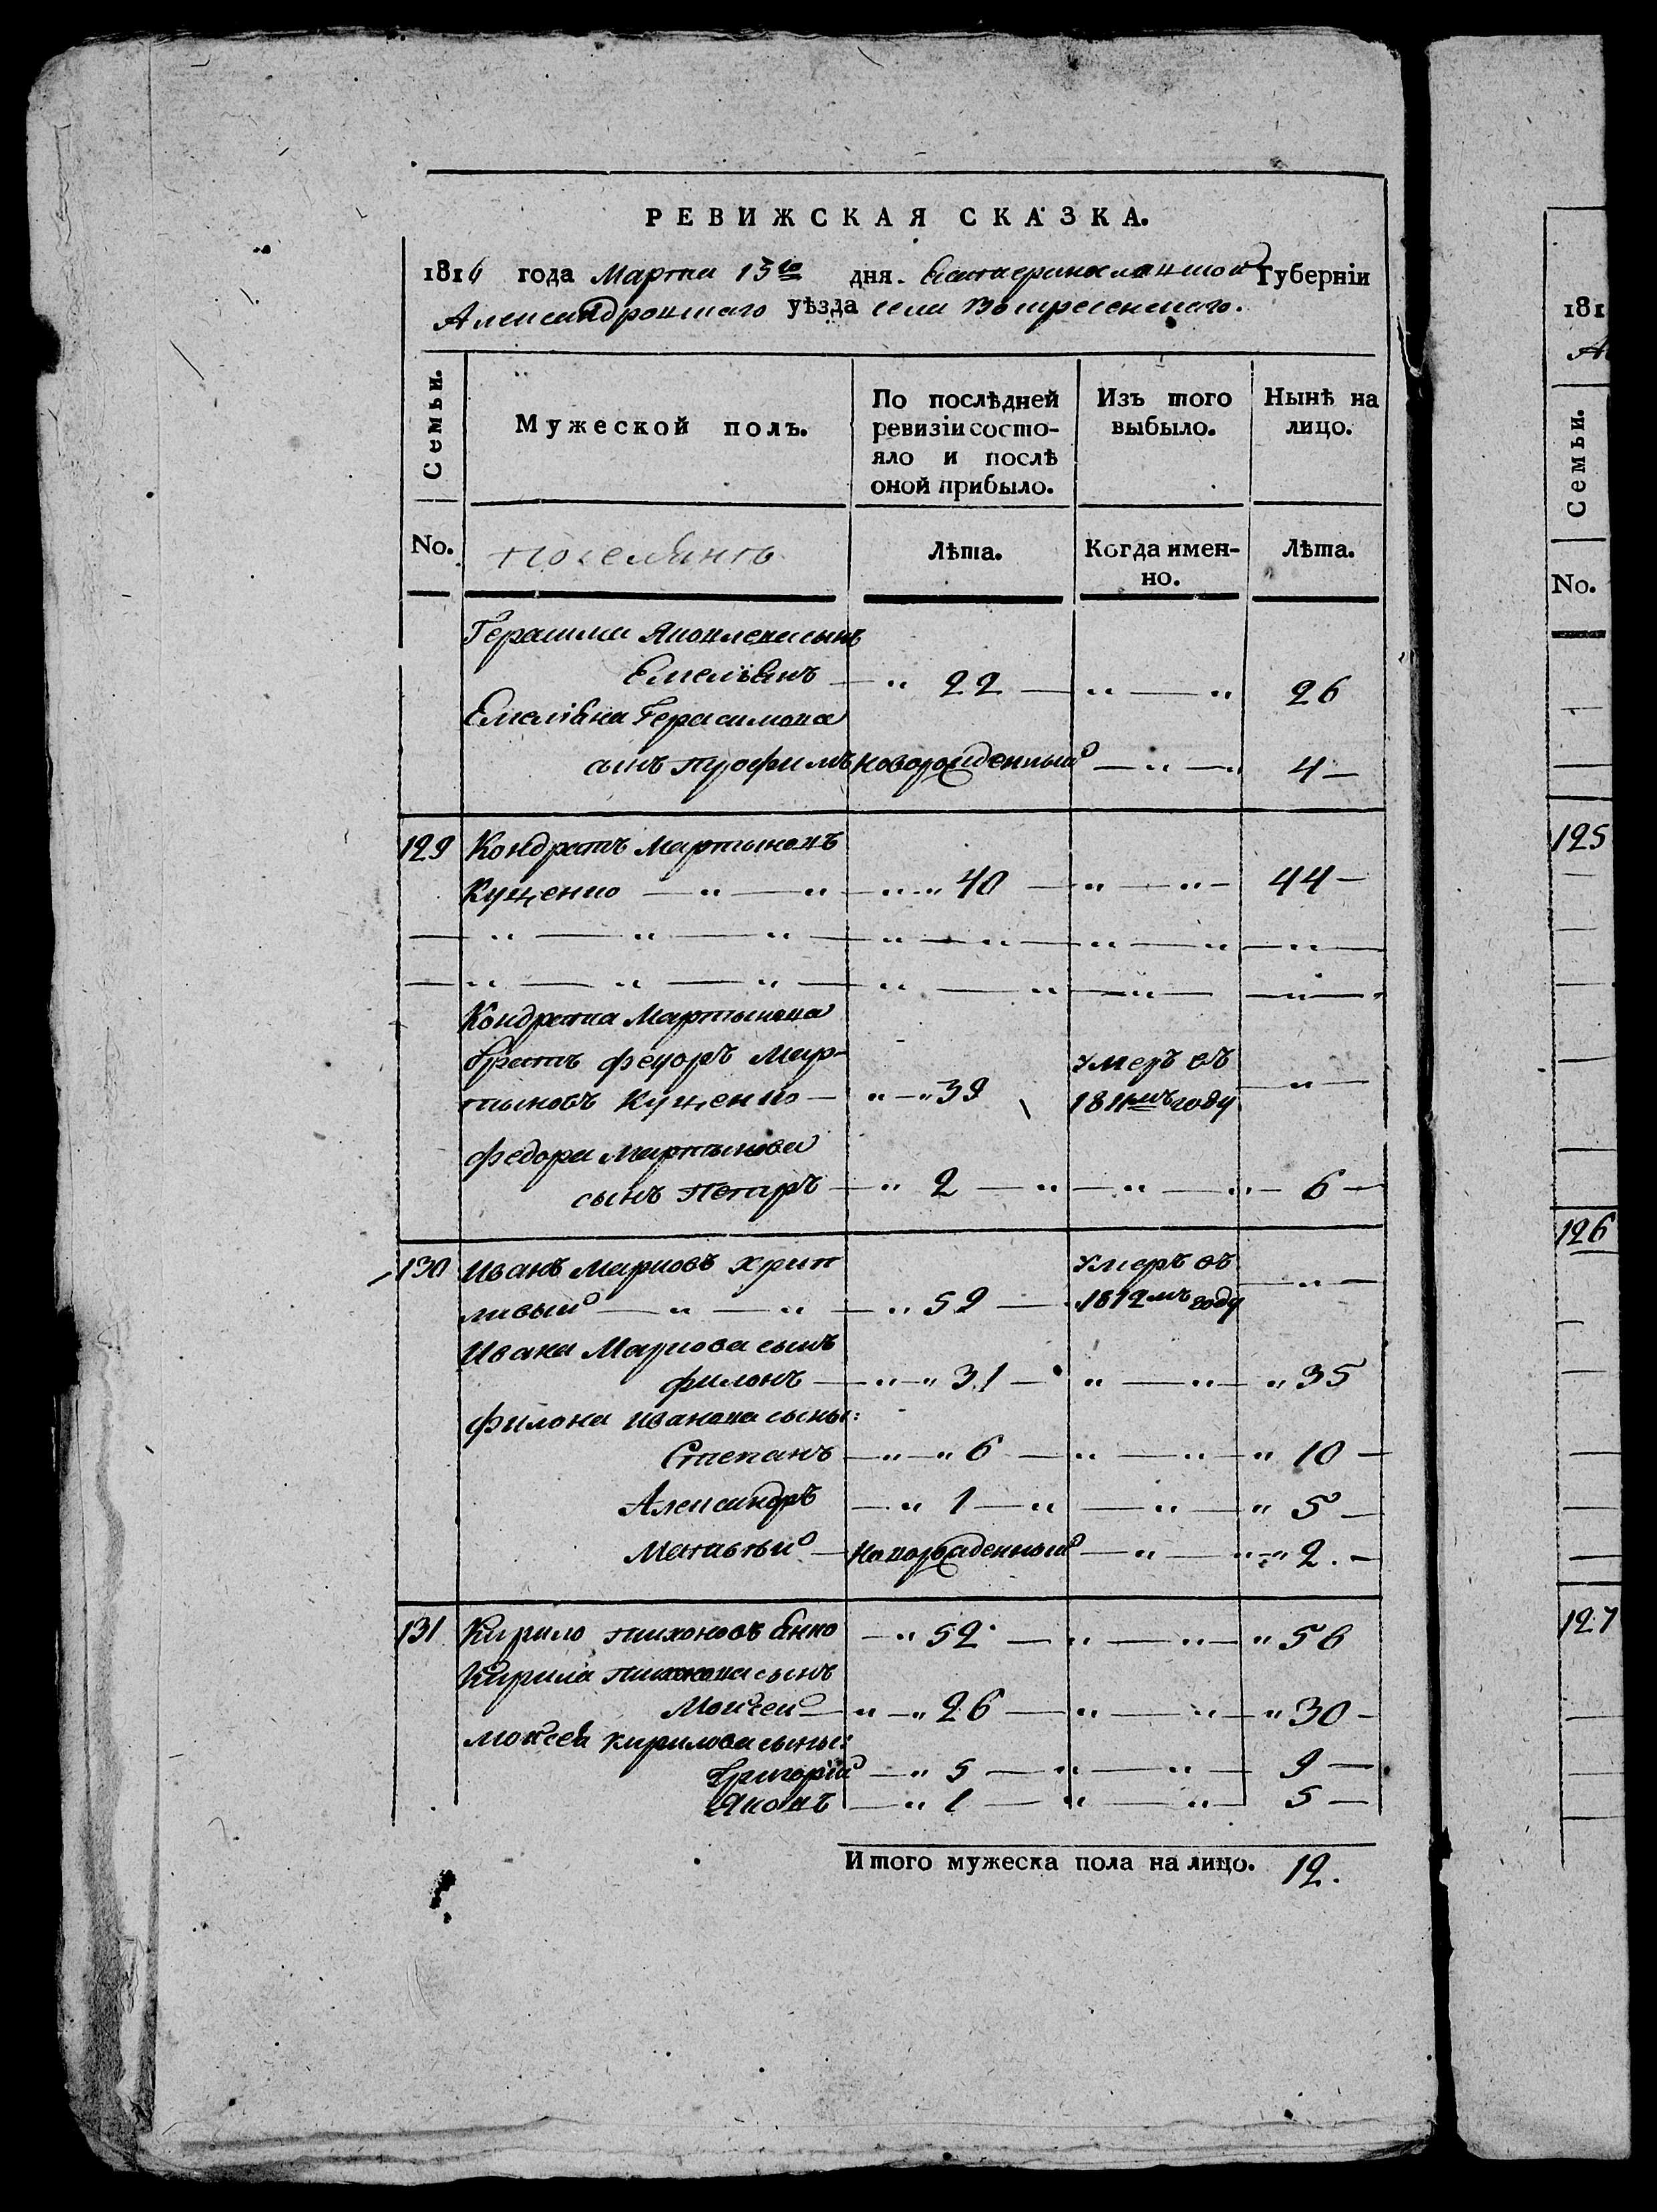 РЕВИЖСКАЯ СКАЗКА.
1816 года Марта 13го дня. Екатеринославской Губерніи
Александровскаго уѣзда села Воскресенскаго.
Семьи.
Мужеской полъ.
По послѣдней ревизіи состояло и послѣ оной прибыло.
Изъ того выбыло.
Нынѣ на лицо.
No.
поселянъ
Лѣта.
Когда именно.
Лѣта.
Герасима Яковлева сынъ
Емельянъ — „ 22 — „ — „ 26
Емеліяна Герасимова
сынъ Трофимъ новорожденный — „ — „ 4 —
129 Кондратъ Мартыновъ
Куценко — „ — „ — „ — „ 40 — „ — „ — 44 —
Кондрата Мартынова
братъ Федоръ Мар-
тыновъ Куценко — „ — „ 39 Умеръ въ 1811мъ году — „ —
Федора Мартынова
сынъ Петръ — „ 2 — „ — „ — „ — 6 —
130 Иванъ Марковъ Хрип
ливый — „ — „ — „ 59 — Умеръ въ 1812мъ году — „ —
Ивана Маркова сынъ
Филонъ — „ — „ 31 — „ — „ — „ 35
Филона Иванова сыны:
Степанъ — „ — „ 6 — „ — „ — „ 10 —
Александръ — „ 1 — „ — „ — „ 5 —
Матвѣй — новорожденный — „ — „ — „ 2. —
131 Кирило Тихоновъ Янко — „ 52 — „ — „ — „ 56
Кирила Тихонова сынъ
Мойсей — „ — „ 26 — „ — „ — „ 30 —
Мойсея Кирилова сыны:
Григорій — „ 5 — „ — „ — 9 —
Яковъ — „ 1 — „ — „ — 5 —
Итого мужеска пола на лицо. 12.
181
Семьи.
No.
125
126
127